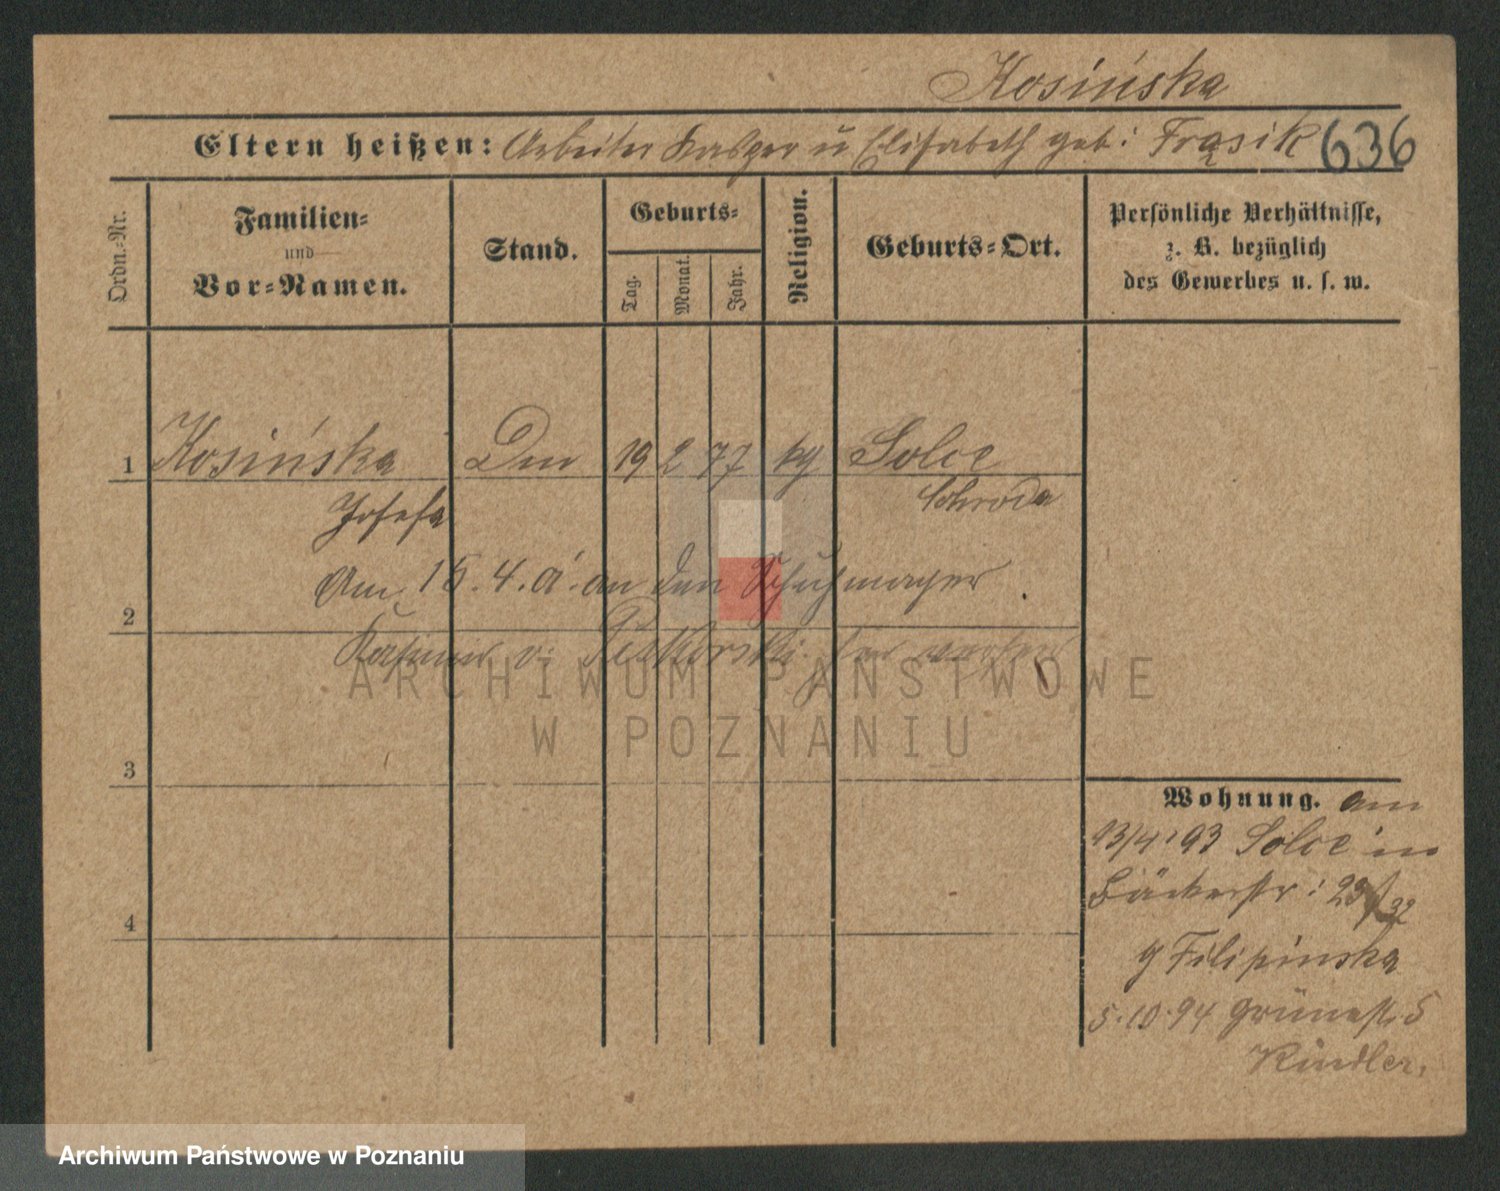 Kosińska
Eltern heißen: Arbeiter Kasper u Elisabeth geb: Frąsik 636
Ordn.-Nr.
Familien-
und
Vor-Namen.
Stand.
Geburts-
Tag.
Monat.
Jahr.
Religion.
Geburts-Ort.
Persönliche Verhältnisse,
z. B. bezüglich
des Gewerbes u. s. w.
1 Kosińska 19 2 77 kg Solec
Josefa Schroda
Am 15.4. an den Schuhmacher
2
Kasimir v.
3
4
Wohnung. am
13/4 93 Solec in
Bäckerstr: 32
Filipinska
5.10.94 Grünestr. 5
Kindler.
ARCHIWUM PAŃSTWOWE
W POZNANIU
Archiwum Państwowe w Poznaniu